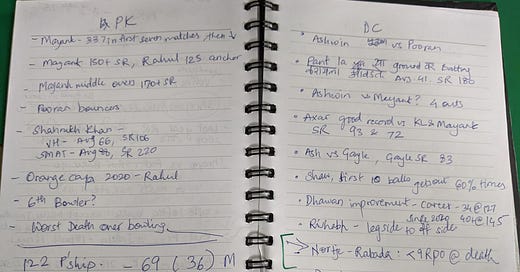 PK
- Mayank - 337 in first seven matches, then ↓
- Mayank 150+ SR, Rahul 125 anchor
- Mayank middle overs 170+ SR
- Pooran bouncers
- Shahrukh Khan -
VH - Avg 66, SR 106
SMAT - Avg 88, SR 220
- Orange cap 2020 - Rahul
- 6th Bowler?
- Worst Death over bowling
122 P'ship - 69 (36) M
DC
• Ashwin vs Pooran
• Pant la ground वर batting
Avg 41. SR 180
• Ashwin vs Mayank? 4 outs
• Axar good record vs KL & Mayank
SR 93 & 72
• Ash vs Gayle, Gayle SR 83
• Shaw, first 10 balls getout 60% times
• Dhawan improvement - Career - 34@127
since 2019 40@145
• Rishabh - legside
to off side
• Nortje - Rabada : <9RPO @ death